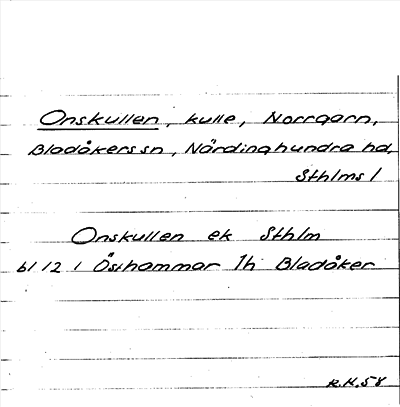 Onskullen, kulle, Norrgarn,
Bladåkers sn, Närdinghundra hd,
Sthlms l
Onskullen ek Sthlm
bl 12 i Östhammar 1h Bladåker
R.H.58